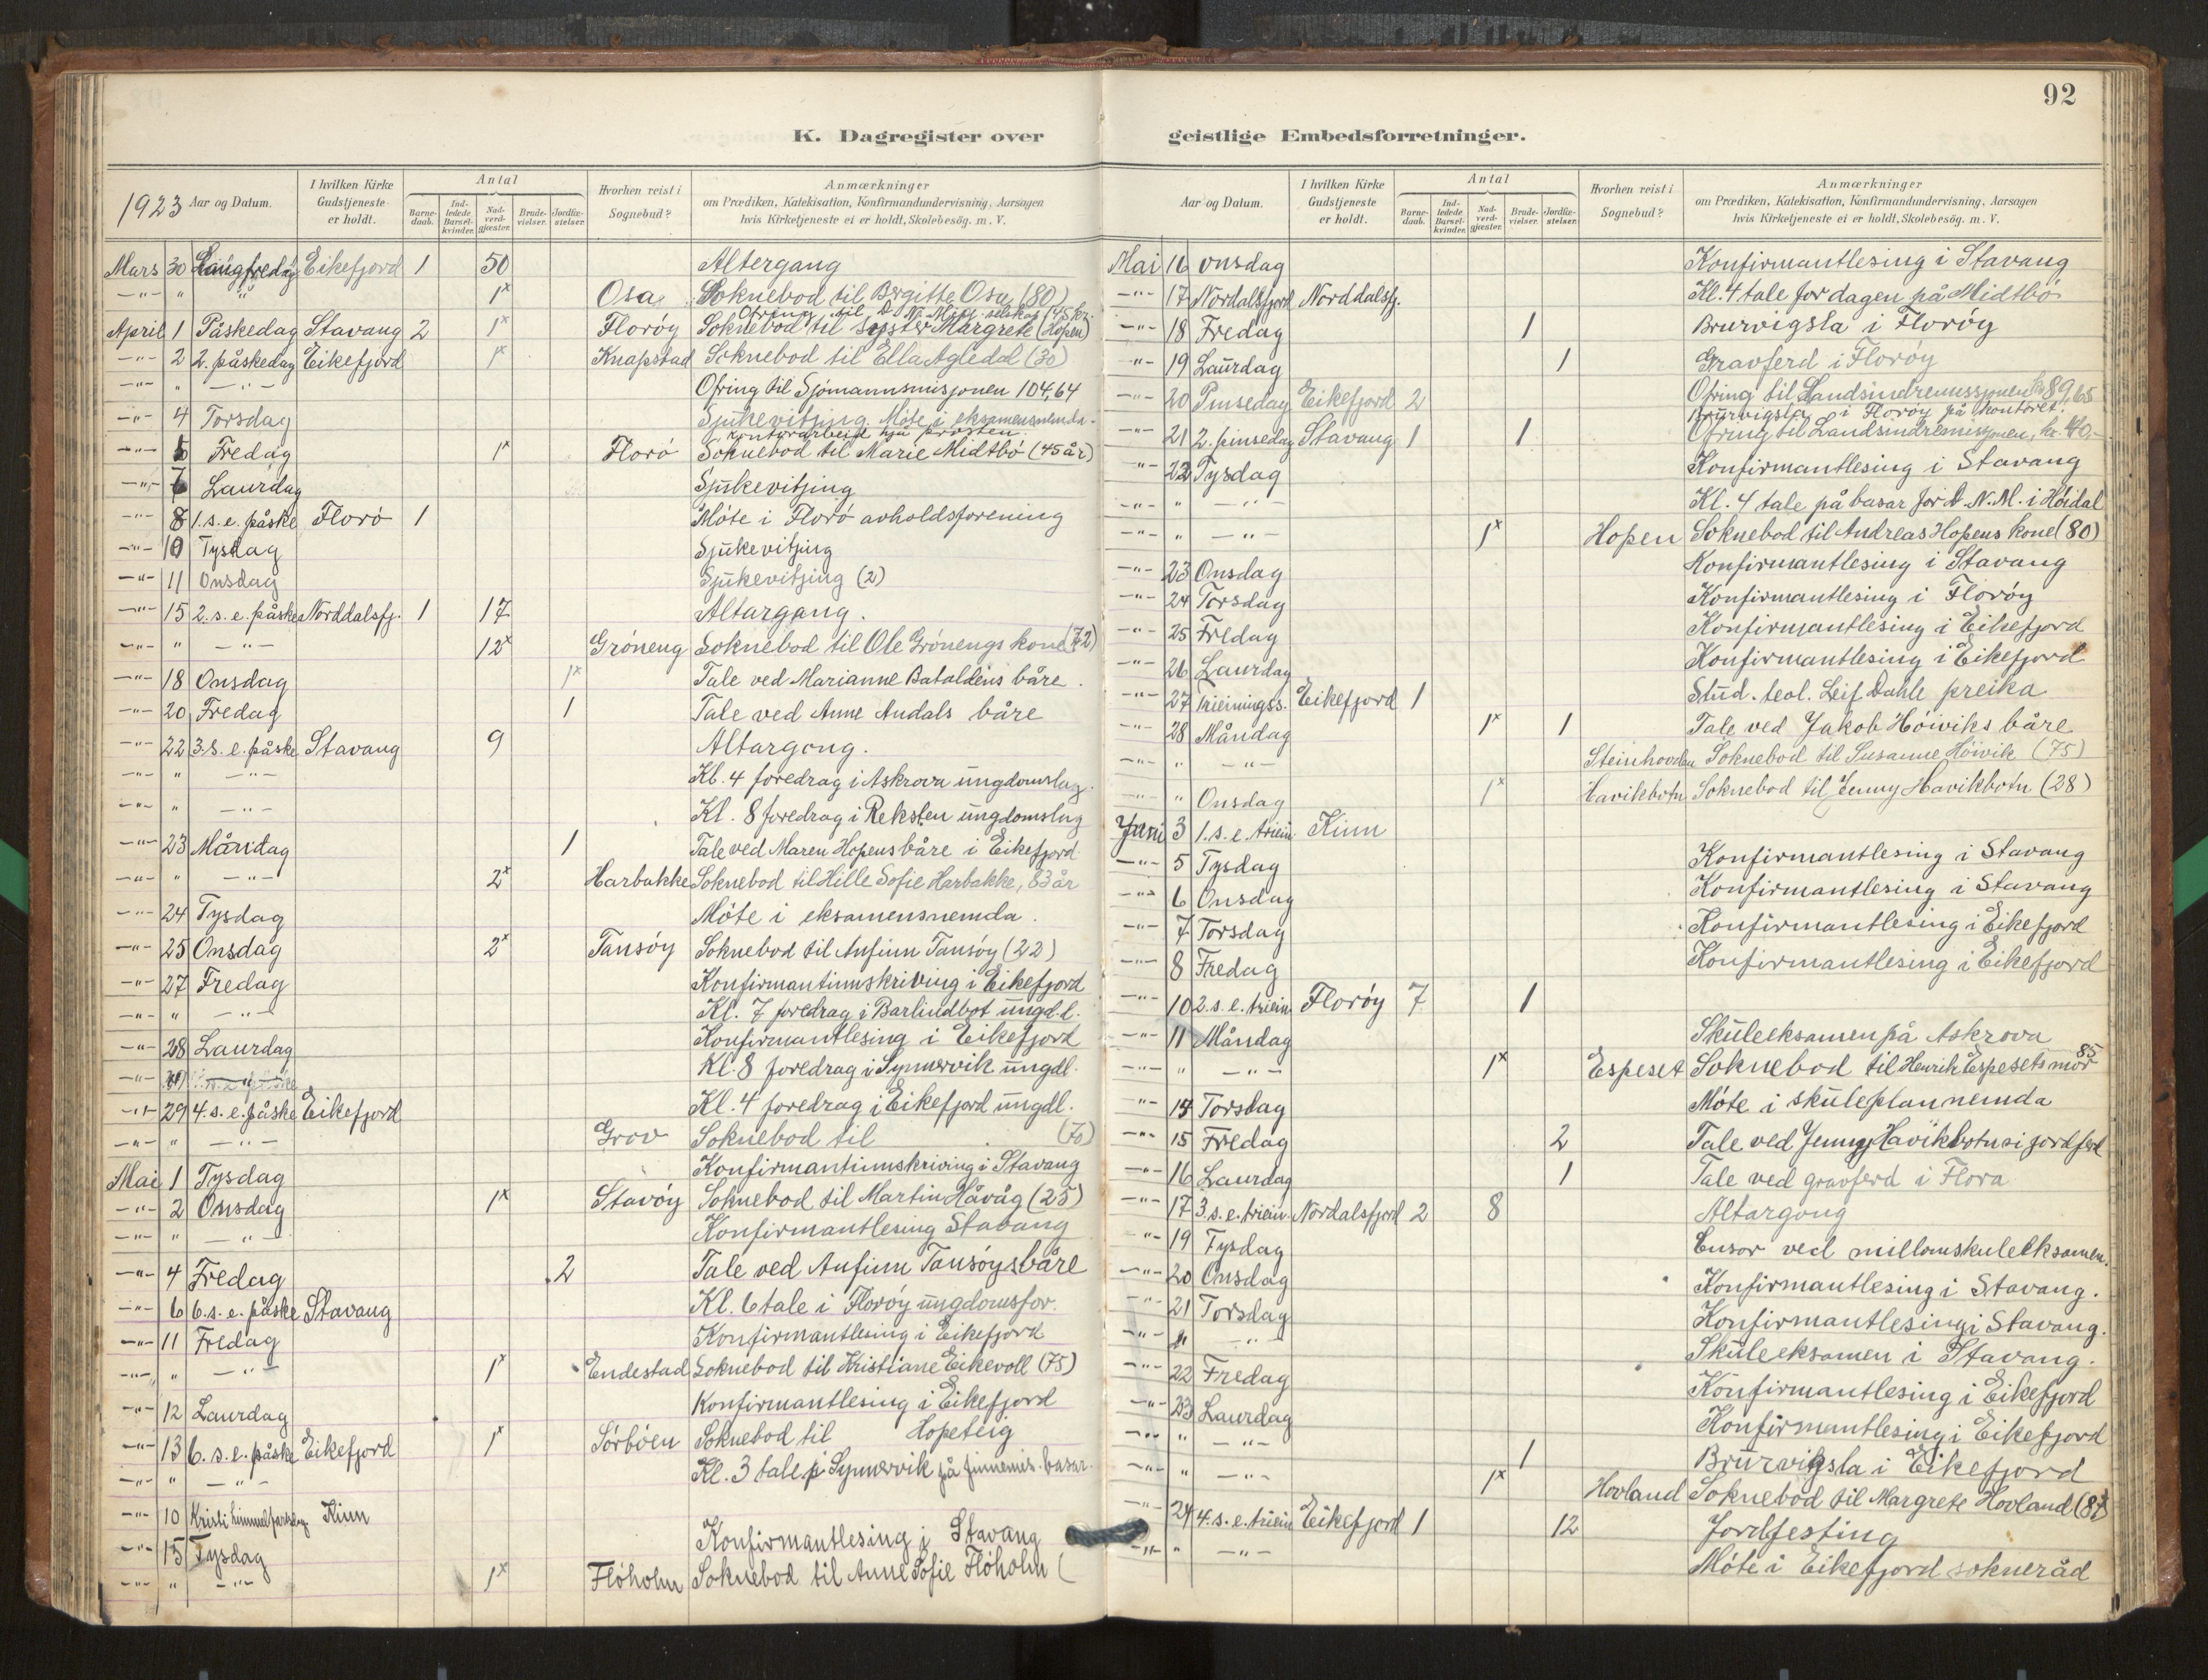 92
K. Dagregister over geistlige Embedsforretninger.
1923 Aar og Datum.
I hvilken Kirke Gudstjeneste er holdt.
Antal
Barnedaab.
Indledede Barselkvinder.
Nadverdgjæster.
Brudevielser.
Jordfæstelser.
Hvorhen reist i Sognebud?
Anmærkninger
om Prædiken, Katekisation, Konfirmandundervisning, Aarsagen
hvis Kirketjeneste ei er holdt, Skolebesög. m. V.
Mars 30 Langfredag Eikefjord 1 50 Altergang
—"— " " 1x Osa Soknebod til Bergitte Osa (80)
Ofring til D. N. Misj. selskap (45 kr.
April 1 Påskedag Stavang 2 1x Florøy Soknebod til syster Margrete (Hopen)
—"— 2 2. påskedag Eikefjord 1x Knapstad Soknebod til Ella Agledal (30)
—"— " —"— Ofring til Sjømannsmisjonen 104,64
—"— 4 Torsdag Sjukevitjing. Møte i eksamensnemda.
kontorarbeid hjå prosten
—"— 6 Fredag 1x Florø Soknebod til Marie Midtbø (45 år)
—"— 7 Laurdag Sjukevitjing
—"— 8 1. s. e. påske Florø 1 Møte i Florø avholdsforening
—"— 10 Tysdag Sjukevitjing
—"— 11 Onsdag Sjukevitjing (2)
—"— 15 2. s. e. påske Norddalsfj. 1 17 Altargang.
—"— " —"— 12x Grøneng Soknebod til Ole Grønengs kone (72)
—"— 18 Onsdag 1x Tale ved Marianne Bataldens båre.
—"— 20 Fredag 1 Tale ved Anne Andals båre
—"— 22 3. s. e. påske Stavang 9 Altargong.
—"— " —"— Kl. 4 foredrag i Askrova ungdomslag.
—"— " —"— Kl. 8 foredrag i Reksten ungdomslag
—"— 23 Måndag 1 Tale ved Maren Hopens båre i Eikefjord
—"— " —"— 2x Harbakke Soknebod til Hille Sofie Harbakke, 83 år
—"— 24 Tysdag Møte i eksamensnemda.
—"— 25 Onsdag 2x Tansøy Soknebod til Anfinn Tansøy (22)
—"— 27 Fredag Konfirmantinnskriving i Eikefjord
—"— " —"— Kl. 7 foredrag i Barlindbot ungd.l.
—"— 28 Laurdag Konfirmantlesing i Eikefjord
—"— Kl. 8 foredrag i Synnervik ungdl.
—"— 29 4. s. e. påske Eikefjord Kl. 4 foredrag i Eikefjord ungdl.
—"— " —"— Grov Soknebod til (70)
Mai 1 Tysdag Konfirmantinnskriving i Stavang
—"— 2 Onsdag 1x Stavøy Soknebod til Martin Håvåg (25)
—"— " —"— Konfirmantlesing Stavang
—"— 4 Fredag 2 Tale ved Anfinn Tansøys båre
—"— 6 6. s. e. påske Stavang Kl. 6 tale i Florøy ungdomsfor.
—"— 11 Fredag Konfirmantlesing i Eikefjord
—"— " —"— 1x Endestad Soknebod til Kristiane Eikevoll (75)
—"— 12 Laurdag Konfirmantlesing i Eikefjord
—"— 13 6. s. e. påske Eikefjord 1x Sørbøen Soknebod til Hopeteig
—"— " —"— Kl. 3 tale i Synnervik på finnemis. basar.
—"— 10 Kristi himmelfartsdag Kinn
—"— 15 Tysdag Konfirmantlesing i Stavang
—"— " —"— 1x Fløholm Soknebod til Anne Sofie Fløholm (
Aar og Datum.
I hvilken Kirke Gudstjeneste er holdt.
Antal
Barnedaab.
Indledede Barselkvinder.
Nadverdgjæster.
Brudevielser.
Jordfæstelser.
Hvorhen reist i Sognebud?
Anmærkninger
om Prædiken, Katekisation, Konfirmandundervisning, Aarsagen
hvis Kirketjeneste ei er holdt, Skolebesög. m. V.
Mai 16 onsdag Konfirmantlesing i Stavang
—"— 17 Nordalsfjord Norddalsfj. Kl. 4 tale for dagen på Midtbø
—"— 18 Fredag 1 Brurvigsla i Florøy
—"— 19 Laurdag 1 Gravferd i Florøy
—"— 20 Pinsedag Eikefjord 2 Ofring til Landsindremisjonen kr 89,65
Brurvigsla i Florøy på kontoret.
—"— 21 2. pinsedag Stavang 1 1 Ofring til Landsindremisjonen, kr. 40,-
—"— 22 Tysdag Konfirmantlesing i Stavang
—"— " —"— Kl. 4 tale på basar for D. N. M. i Høidal
—"— " —"— 1x Hopen Soknebod til Andreas Hopens kone (80)
—"— 23 Onsdag Konfirmantlesing i Stavang
—"— 24 Torsdag Konfirmantlesing i Florøy
—"— 25 Fredag Konfirmantlesing i Eikefjord
—"— 26 Laurdag Konfirmantlesing i Eikefjord
—"— 27 Trieiningss. Eikefjord 1 Stud. teol. Leif Dahle preika
—"— 28 Måndag 1x 1 Tale ved Jakob Høiviks båre
—"— " —"— Steinhovden Soknebod til Susanne Høivik (75)
—"— " Onsdag 1x Havikbotn Soknebod til Jenny Havikbotn (28)
Juni 3 1. s. e. triein. Kinn
—"— 5 Tysdag Konfirmantlesing i Stavang
—"— 6 Onsdag Konfirmantlesing i Stavang
—"— 7 Torsdag Konfirmantlesing i Eikefjord
—"— 8 Fredag Konfirmantlesing i Eikefjord
—"— 10 2. s. e. triein. Florøy 7 1
—"— 11 Måndag Skuleeksamen på Askrova
—"— " —"— 1x Espeset Soknebod til Henrik Espesets mor 85
—"— 14 Torsdag Møte i skuleplannemda
—"— 15 Fredag 2 Tale ved Jenny Havikbotns jordferd
—"— 16 Laurdag 1 Tale ved gravferd i Flora
—"— 17 3. s. e. triein. Nordalsfjord 2 8 Altargong
—"— 19 Tysdag Ensor ved millomskuleeksamen.
—"— 20 Onsdag Konfirmantlesing i Stavang.
—"— 21 Torsdag Konfirmantlesing i Stavang.
—"— " —"— Skuleeksamen i Stavang.
—"— 22 Fredag Konfirmantlesing i Eikefjord
—"— 23 Laurdag Konfirmantlesing i Eikefjord
—"— " —"— 1 Brurvigsla i Eikefjord
—"— " —"— 1x Hovland Soknebod til Margrete Hovland (87)
—"— 24 4. s. e. triein Eikefjord 1 12 Jordfesting
—"— " —"— Møte i Eikefjord sokneråd